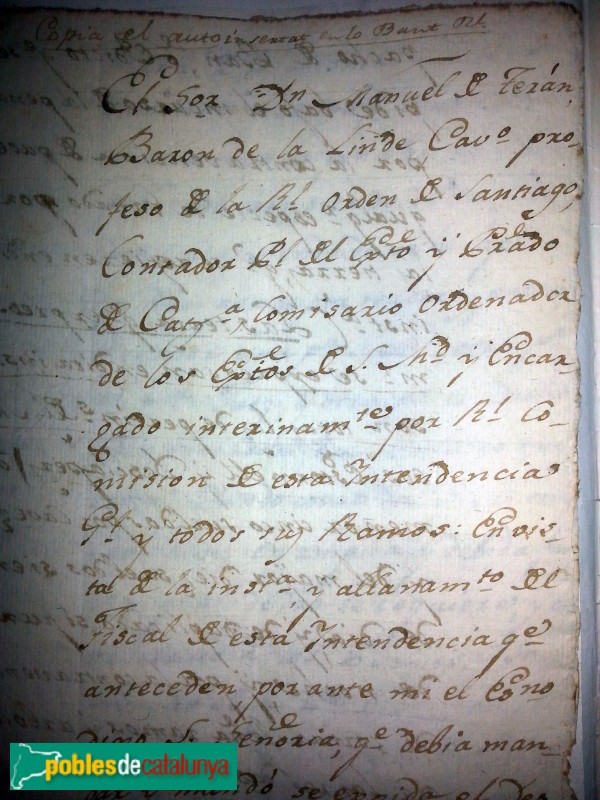 Copia el auto insertat en lo Bant Rl.
El Sor. Dn. Manuel de Terán,
Baron de la Linde Cavo. pro-
feso de la Rl. Orden de Santiago,
Contador Pl. del Exto. y Prado
de Catha. Comisario Ordenador
de los Extos de S. Md. y Encar-
gado interinamte. por Rl. Co-
mision de esta Intendencia
Gl. y todos sus Ramos: En vis-
ta de la insta. y allanamto. del
Fiscal de esta Intendencia qe.
anteceden por ante mi el Esno
Dijo Su Señoria, qe. debia man-
dar y mandó se expida el
poblesdecatalunya